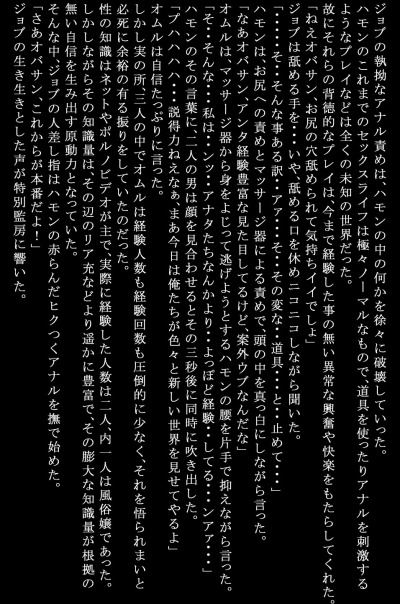 ジョブの執拗なアナル責めは、ハモンの中の何かを徐々に破壊していった。
ハモンのこれまでのセックスライフは極々ノーマルなもので、道具を使ったりアナルを刺激する
ようなプレイなどは全くの未知の世界だった。
故にそれらの背徳的なプレイは、今まで経験した事の無い異常な興奮や快楽をもたらしてくれた。
「ねえオバサン、お尻の穴舐められて気持ちイイでしょ」
ジョブは舐める手を・・・いや、舐める口を休めニコニコしながら聞いた。
「・・・・・そ・・そんな事ある訳・・アァ・・・そ・・その変な・・道具・・・・と・・止めて・・・」
「・・・・・」
ハモンは、お尻への責めとマッサージ器による責めで、頭の中を真っ白にしながら言った。
「なあオバサン、アンタ経験豊富な見た目してるけど、案外ウブなんだな」
オムルは、マッサージ器から身をよじって逃げようとするハモンの腰を片手で抑えながら言った。
「そ・・そんな・・・私は・・・ンッ・・アナタたちなんかより・・よっぽど経験・・してる・・・ンアァ・・・」
ハモンのその言葉に、二人の男は顔を見合わせるとその三秒後に同時に吹き出した。
「プハハハハ・・・説得力ねえなぁ、まあ今日は俺たちが色々と新しい世界を見せてやるよ」
オムルは自信たっぷりに言った。
しかし実の所、三人の中でオムルは経験人数も経験回数も圧倒的に少なく、それを悟られまいと
必死に余裕の有る振りをしていたのだった。
性の知識はネットやポルノビデオが主で、実際に経験した人数は二人、内一人は風俗嬢であった。
しかしながらその知識量は、その辺のリア充などより遥かに豊富で、その膨大な知識量が根拠の
無い自信を生み出す原動力となっていた。
そんな中、ジョブの人差し指はハモンの赤らんだヒクつくアナルを撫で始めた。
「さあオバサン、これからが本番だよ！」
ジョブの生き生きとした声が特別監房に響いた。